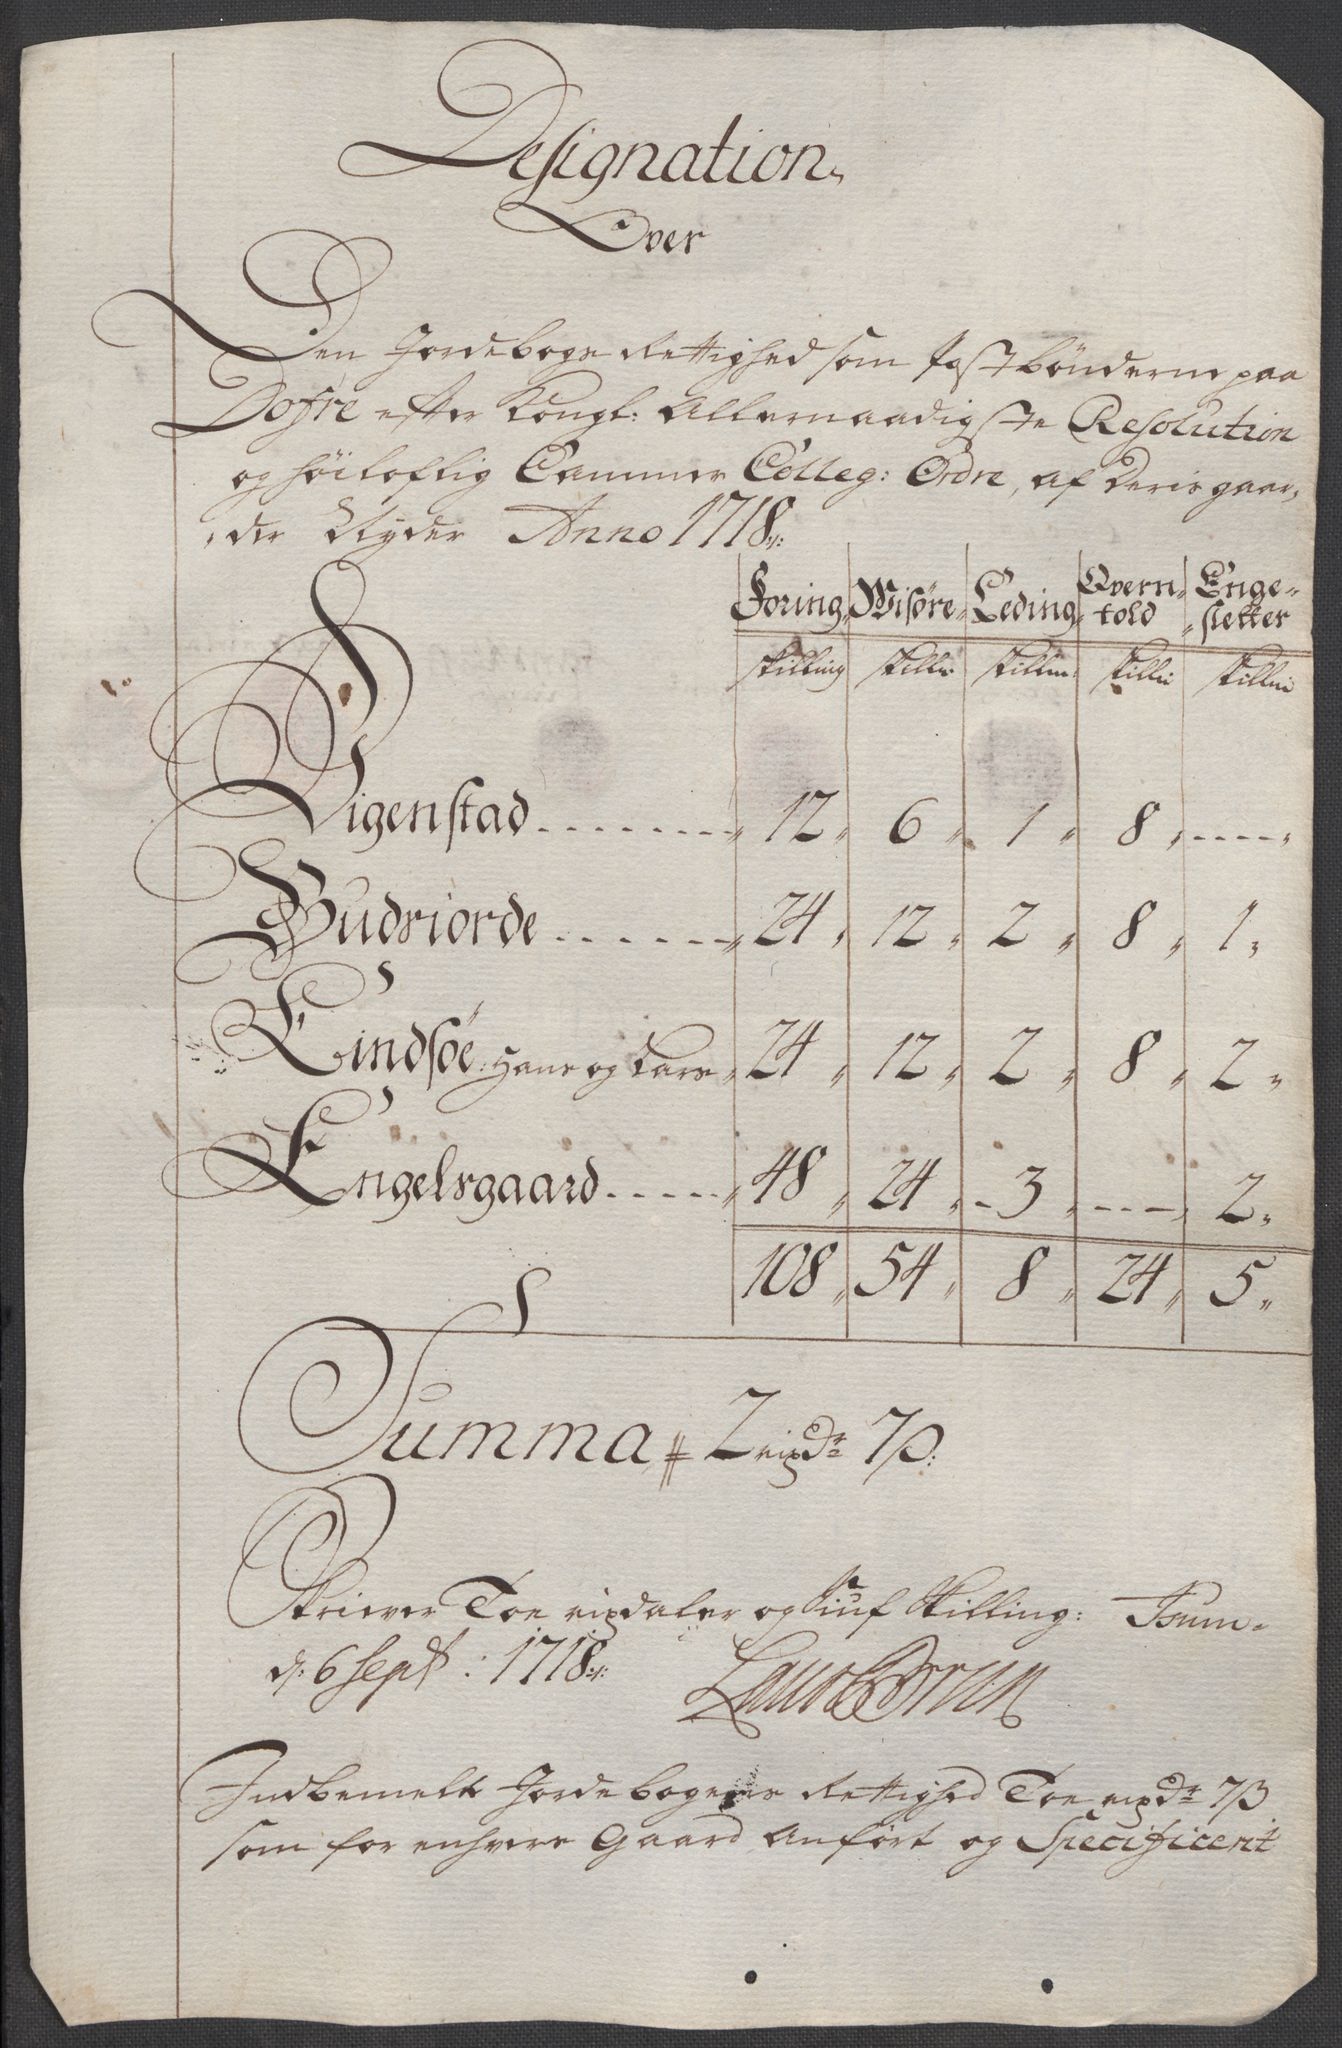 Designation
Over
Den Jordebogs Rettighed som postbönderne paa
Dofre efter Kongl: Allernaadigste Resolution
og höiloflig Cammer Colleg: Ordre, af deris gaar,
,der Nyder Anno 1718:
Foring, Wisöre, Leding, Qvern- Enge-
told, sletter
skilling skilli skillin: skilli skillin
Vigenstad ........ 12, 6, 1, 8, ----,
Budsiorde ....... 24, 12, 2, 8, 1,
Lindsöe: Hans og Lars, 24, 12, 2, 8, 2,
Engelsgaard ..... 48, 24, - 3, ----, 2,
108, 54, 8, 24, 5,
Summa # 2 rixdr 7 ß:
Skriever Toe rixdaler og Siuf Skilling:
d: 6 Sept: 1718:
Indbemelte Jordebogens Rettighed Toe rixdr 7 ß
som for enhvers Gaard anfört og Specificerit